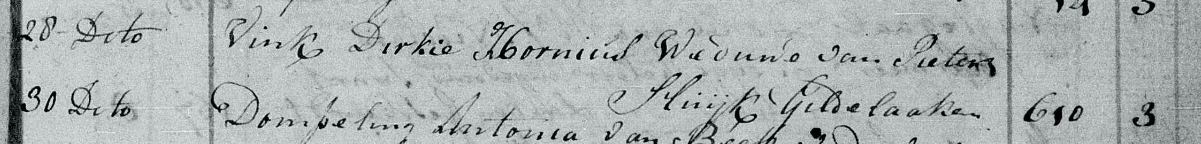 14 3
28 Dito Vink Dirkie Hornius Weduwe van Pieter
Sluijk Gildelaaken 610 3
30 Dito Dompeling Antonia van Beek